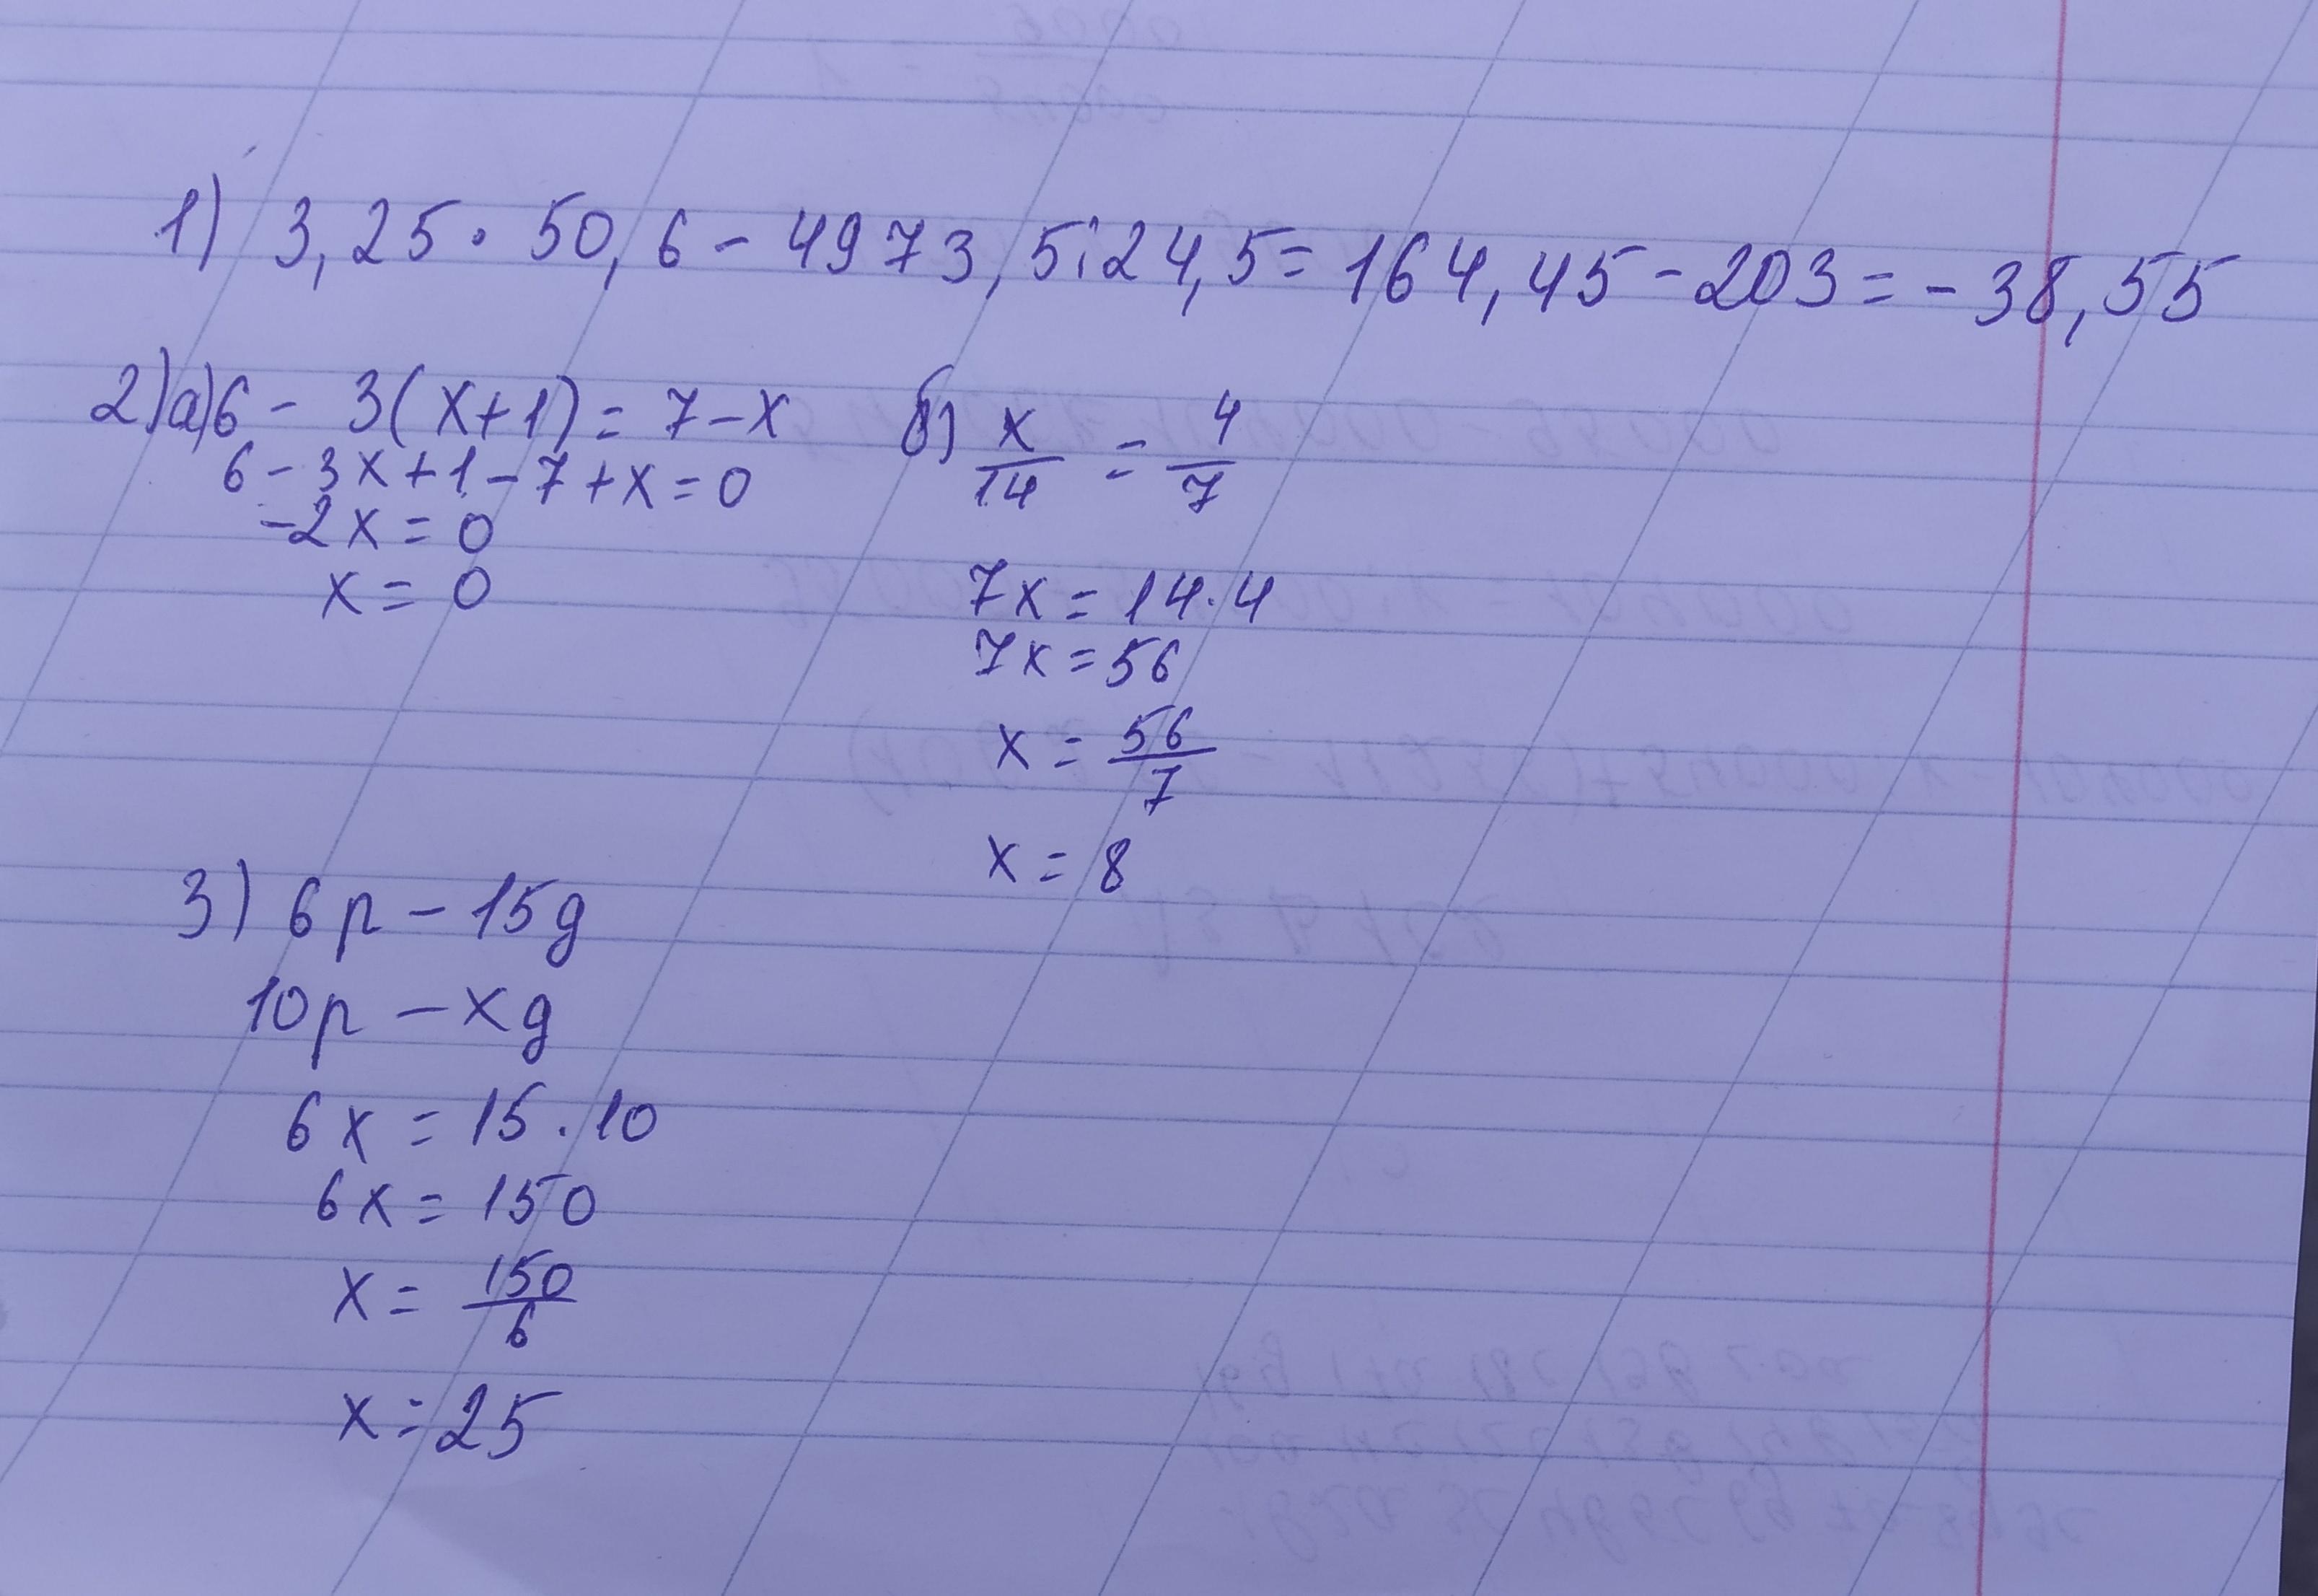 1) 3,25 · 50,6 - 4973,5:24,5 = 164,45 - 203 = - 38,55
2) а) 6 - 3(x+1) = 7 - x
6 - 3x + 1 - 7 + x = 0
-2x = 0
x = 0
б) x/14 = 4/7
7x = 14 · 4
7x = 56
x = 56/7
x = 8
3) 6р - 15д
10р - xд
6x = 15 · 10
6x = 150
x = 150/6
x = 25